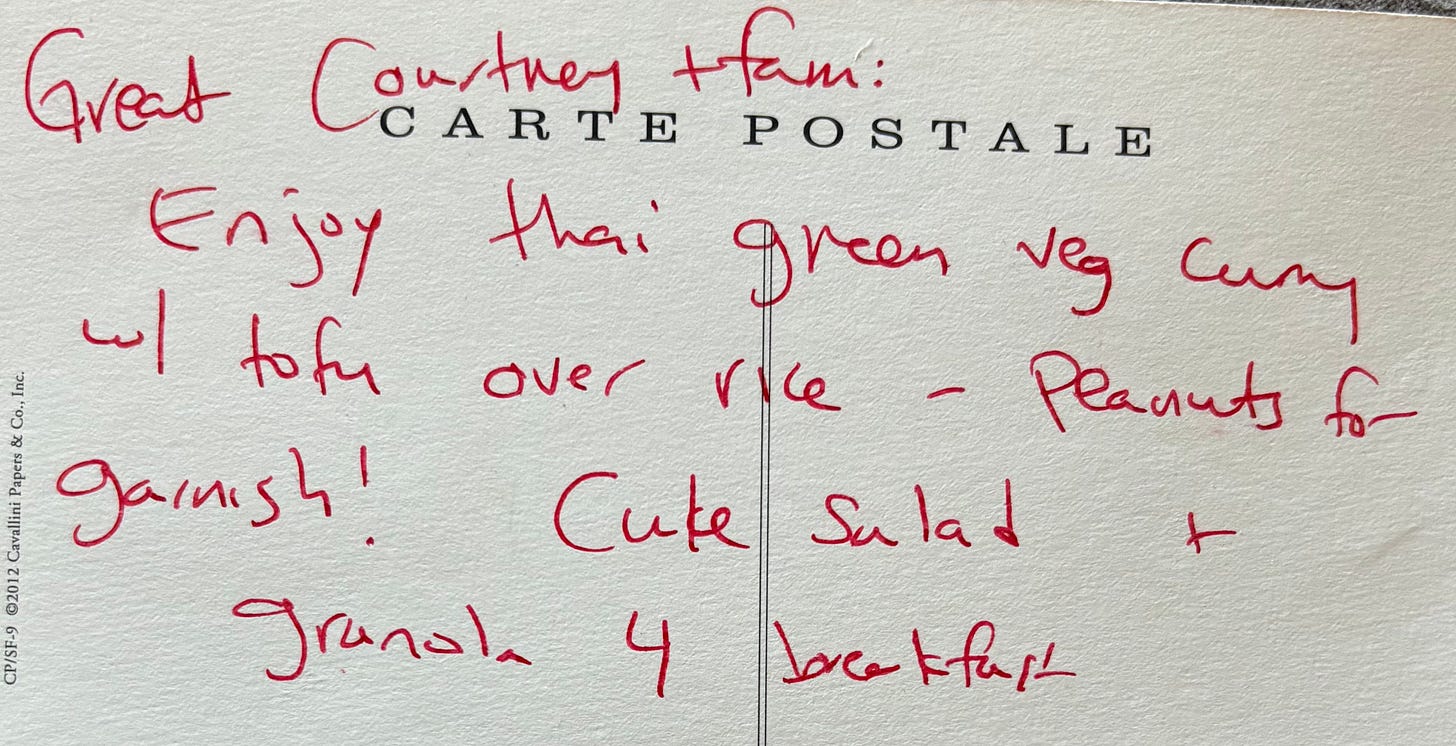 Great Courtney + fam:
CARTE POSTALE
Enjoy thai green veg curry
w/ tofu over rice - Peanuts for
garnish! Cuke Salad +
granola 4 breakfast
CP/SF-9 ©2012 Cavallini Papers & Co., Inc.